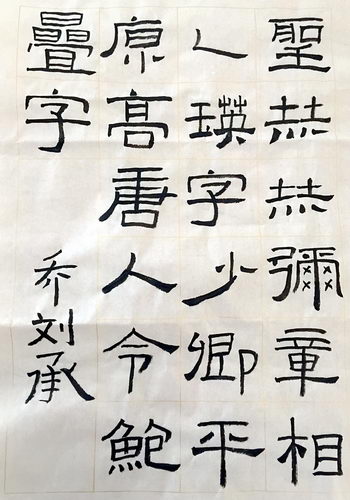 聖赫赫彌章相
乙瑛字少卿平
原高唐人令鮑
疊字
乔刘承